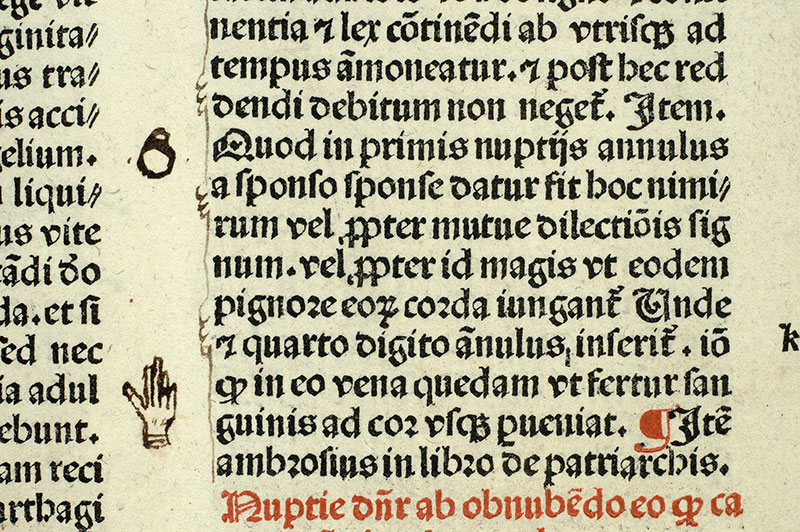 ginita⸗
us tra⸗
is acci⸗
elium.
liqui⸗
us vite
cādi
da. et si
sed nec
ia adul
ebunt.
am reci
arthagi
nentia ⁊ lex cōtinēdi ab vtrisqꝫ ad
tempus āmoneatur. ⁊ post hec red
dendi debitum non neget̄. Item.
Quod in primis nuptijs annulus
a sponso sponse datur fit hoc nimi⸗
rum vel ꝓpter mutue dilectiōis sig
num. vel ꝓpter id magis vt eodem
pignore eoꝝ corda iungant̄ Unde
⁊ quarto digito ānulus inserit̄. iō
ꝙ in eo vena quedam vt fertur san
guinis ad cor vsqꝫ ꝑueniat. ¶ Itē
ambrosius in libro de patriarchis.
Nuptie dn̄r ab obnubēdo eo ꝙ ca
k